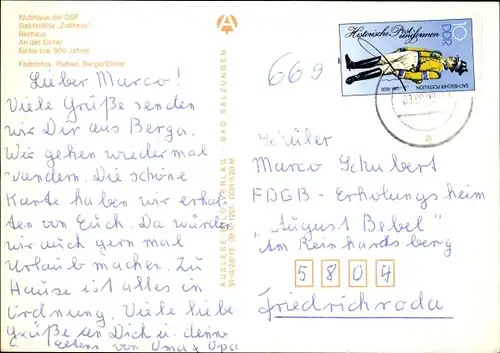 Klubhaus der DSF
Gaststätte „Zollhaus"
Rathaus
An der Elster
Eiche (ca. 800 Jahre)
Farbfotos: Pichler, Berga/Elster
Lieber Marco!
Viele Grüße senden
wir Dir aus Berga.
Wir gehen wieder mal
wandern. Die schöne
Karte haben wir erhal
ten von Euch. Da würde
wir auch gern mal
Urlaub machen. Zu
Hause ist alles in
Ordnung. Viele liebe
Grüße an Dich u. deine
Eltern von Oma + Opa
AUSLESE-BILD-VERLAG · BAD SALZUNGEN
669
Historische Postuniformen
10
DDR
SÄCHSISCHER POSTILLION
UM 1850
Schüler
Marco Schubert
FDGB-Erholungsheim
„August Bebel"
Am Reinhardsberg
5804
Friedrichroda